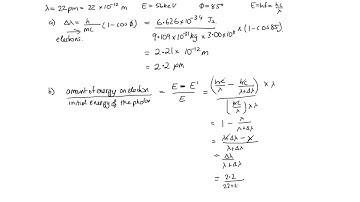 λ = 22 pm = 22 × 10⁻¹² m E = 56keV Φ = 85° E=hf= hc/λ
a) Δλ = h/mc (1 - cosϕ) = 6.626×10⁻³⁴ Js / 9.109×10⁻³¹kg × 3.00×10⁸ × (1-cos85)
electrons.
= 2.21 × 10⁻¹² m
= 2.2 pm
b) amount of energy on electron / initial energy of the photon = E - E' / E = (hc/λ - hc/λ+Δλ) × λ / (hc/λ) × λ
= 1 - λ/λ+Δλ
= λ+Δλ-λ / λ+Δλ
= Δλ / λ+Δλ
= 2.2 / 22+2.2